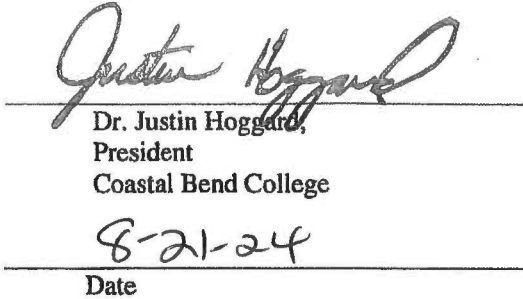 Justin Hoggard
Dr. Justin Hoggard,
President
Coastal Bend College
8-21-24
Date